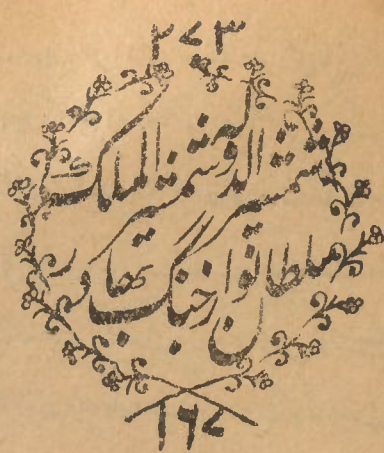 ۲۷۳
شمشیر الدولہ شمشیر الملک
سلطان نواز جنگ بہادر
۱۶۷